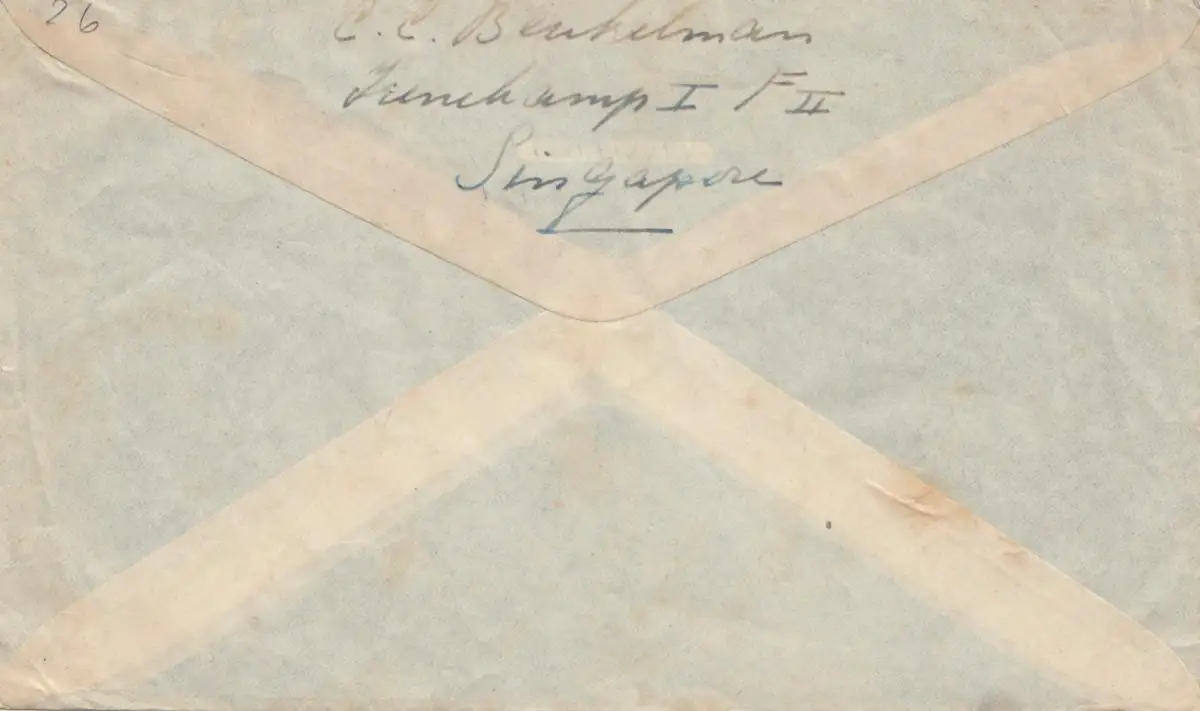 26
C. C. Beukelman
Irenehamp I F II
Singapore